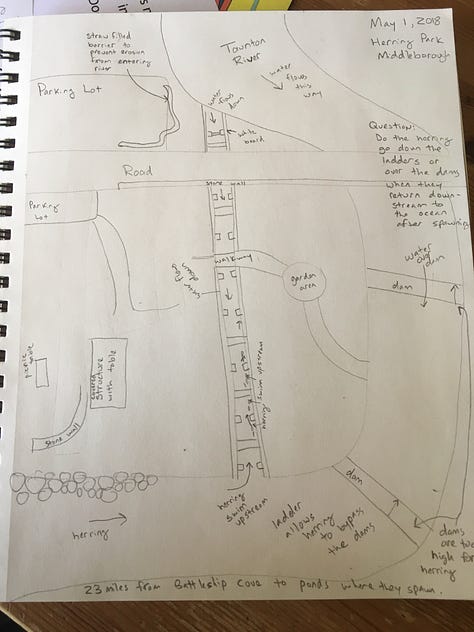 May 1, 2018
Herring Park
Middleborough
straw filled
barrier to
prevent erosion
from entering
river
Taunton
River
water
flows
this
way
Parking Lot
water
flows
down
white
board
Question:
Do the herring
go down the
ladders or
over the dams
when they
return down-
stream to
the ocean
after spawning
Road
stone wall
Parking
Lot
walkway
water flows
down
garden
area
water
over
dam
dam
picnic
table
covered
structure
with table
stone wall
herring swim upstream
herring
swim
upstream
ladder
allows
herring
to bypass
the dams
dam
dams
are too
high for
herring
herring
23 miles from Battleship Cove to ponds where they spawn.